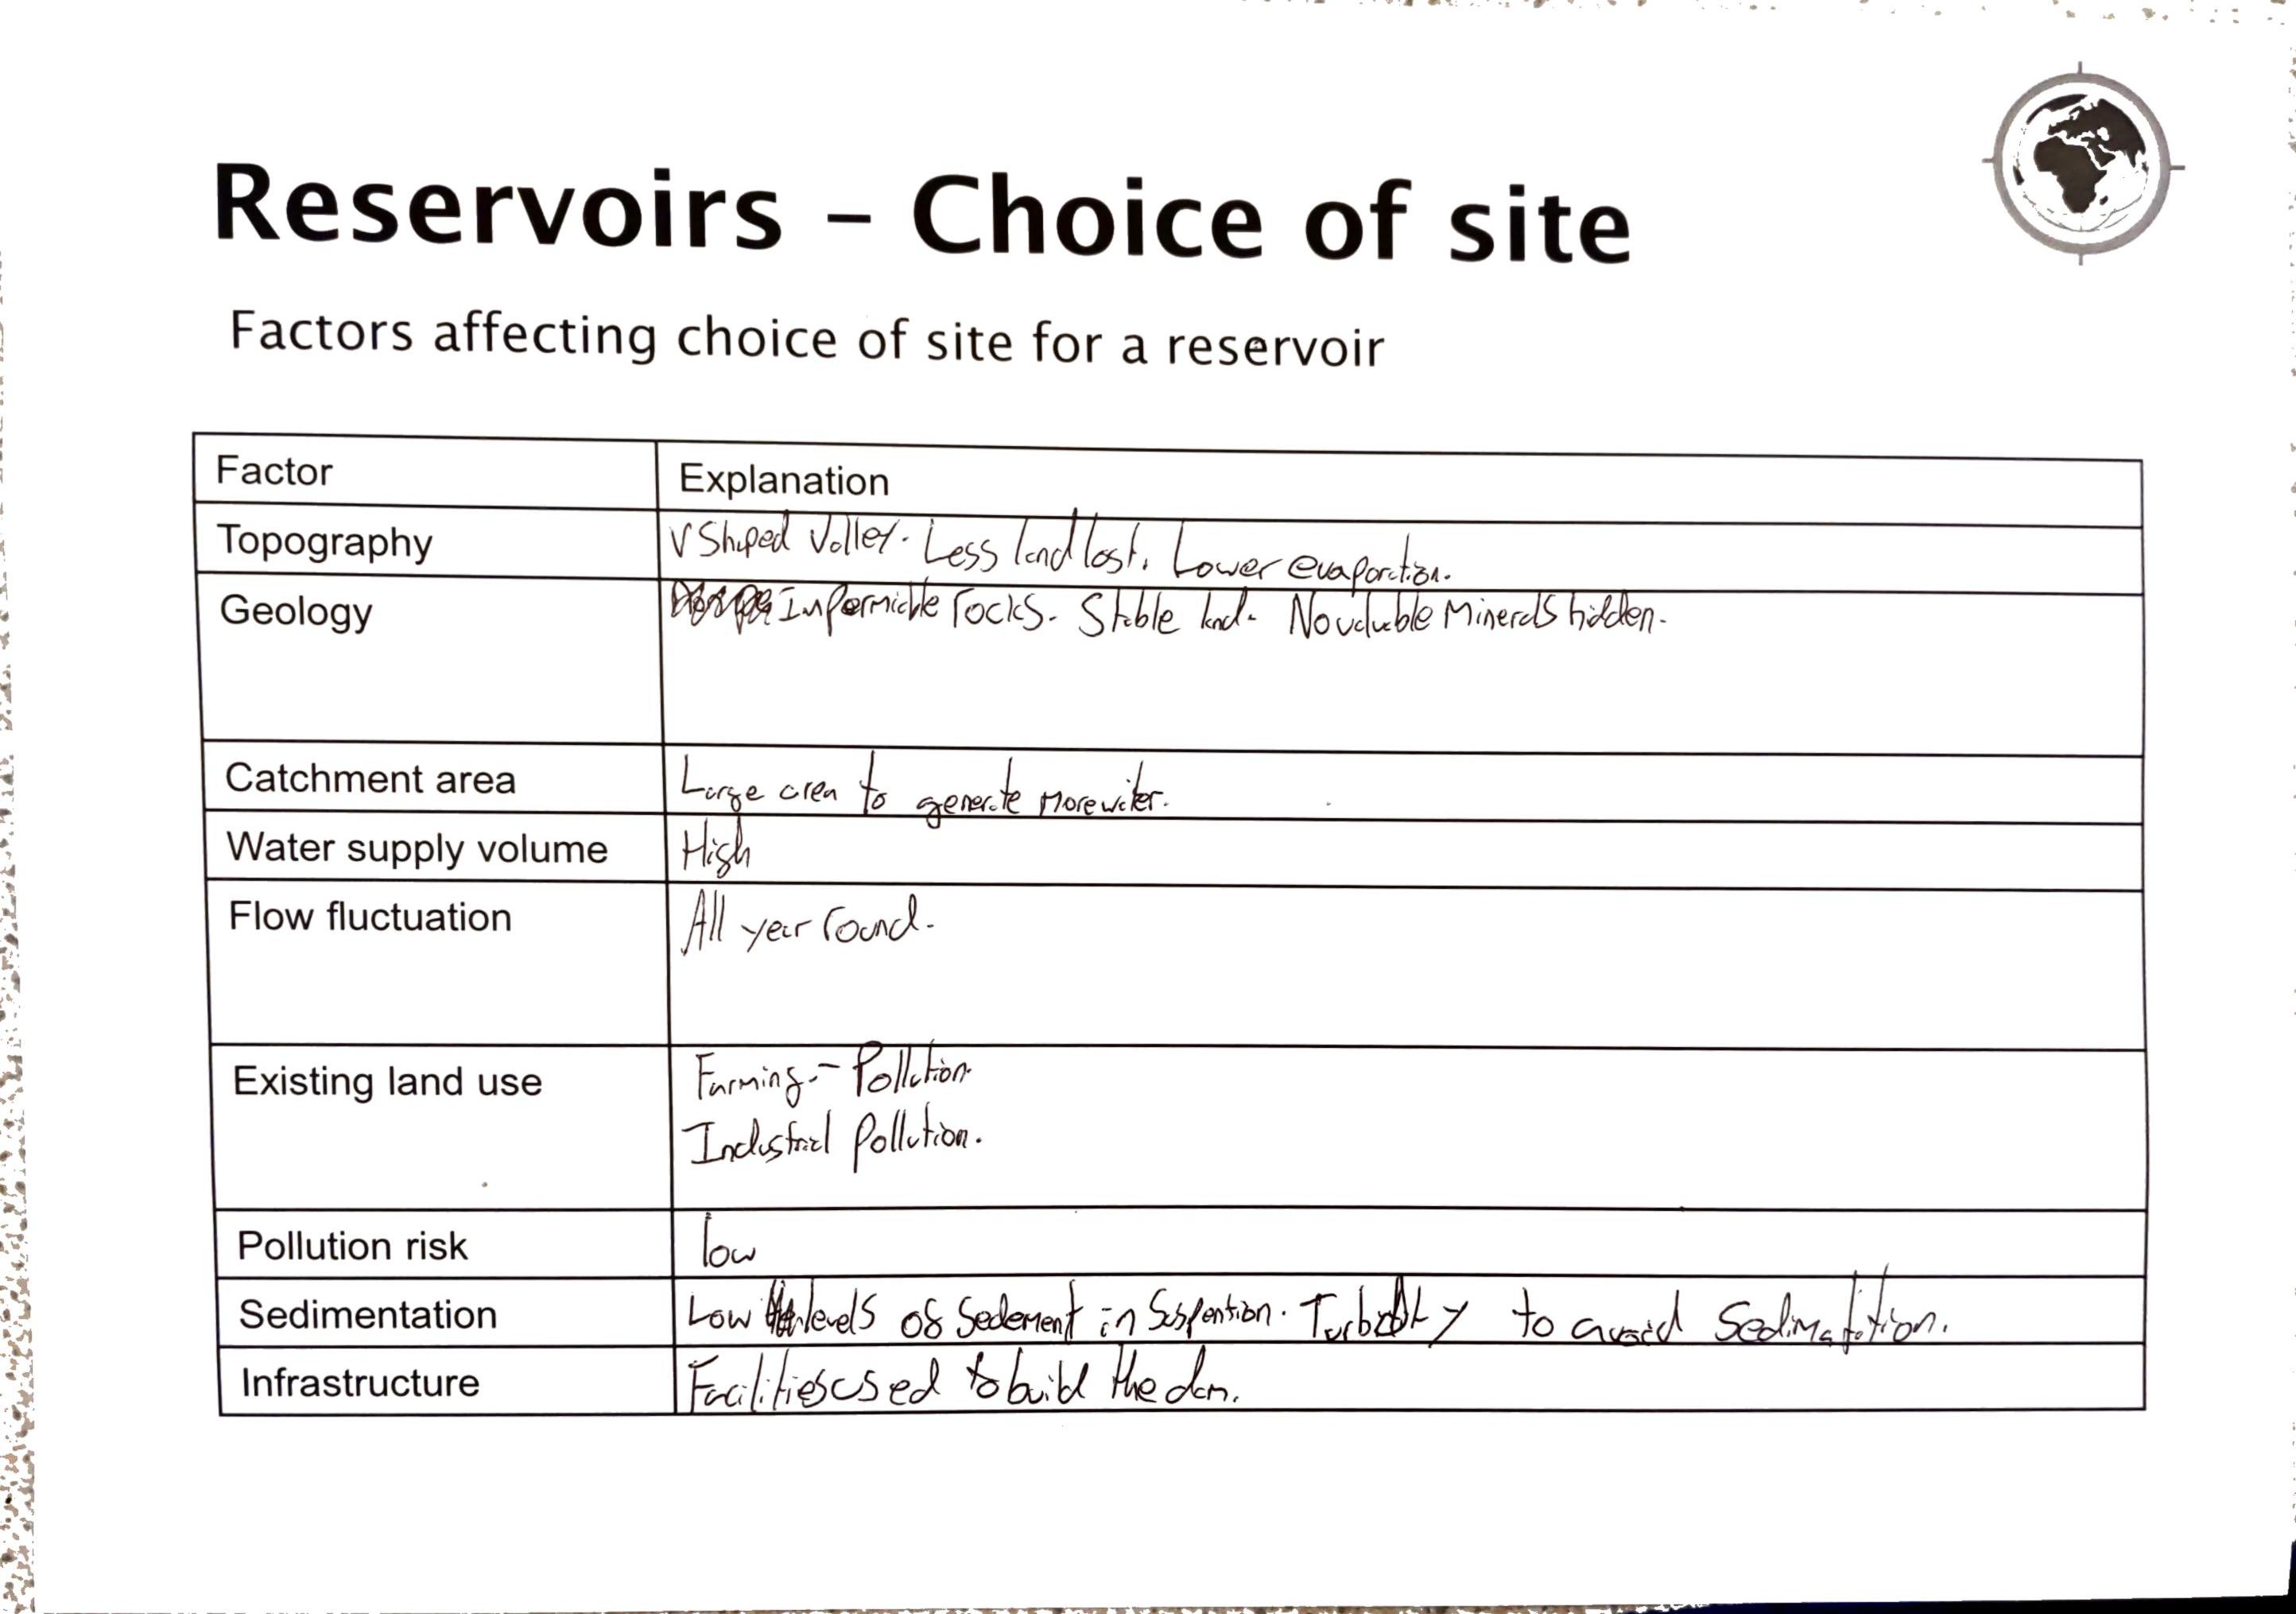 Reservoirs – Choice of site
Factors affecting choice of site for a reservoir
Factor Explanation
Topography V Shaped Valley. Less land lost. Lower evaporation.
Geology Impermiable rocks. Stable land. No valuable Minerals hidden.
Catchment area Large area to generate more water.
Water supply volume High
Flow fluctuation All year round.
Existing land use Farming - Pollution.
Industrial Pollution.
Pollution risk low
Sedimentation Low levels of Sedement in Suspention. to avoid Sedimatation.
Infrastructure Facilities used to build the dam.